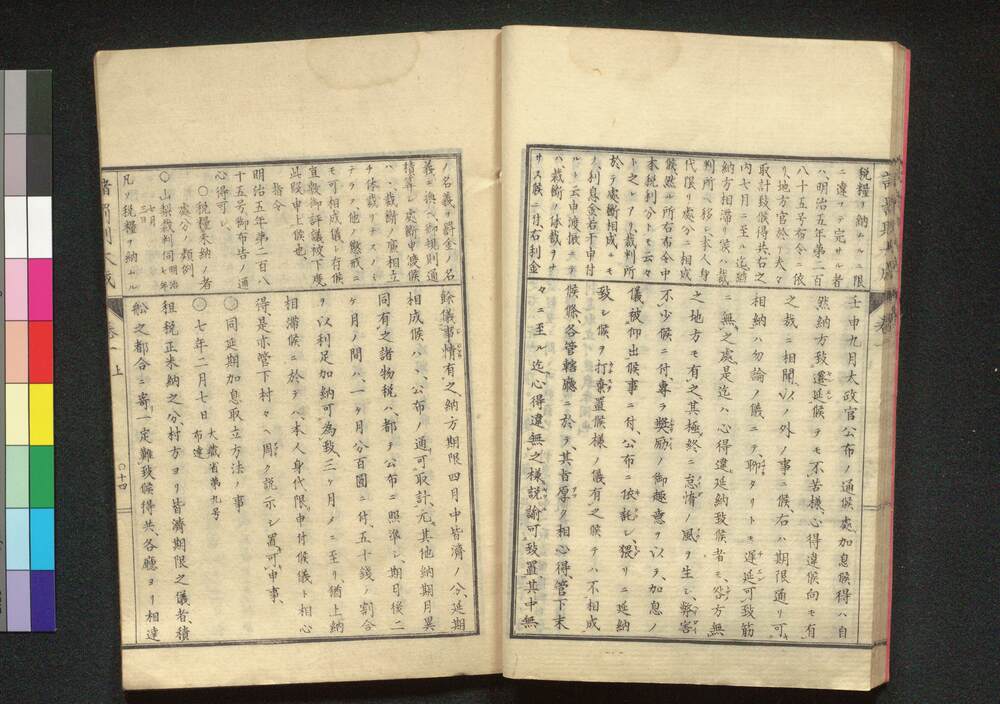 税糧ヲ納ムルニ限
ニ違フテ完サル者
ハ、明治五年第二百
八十五号布令ニ依
リ、地方官於テ夫々
取計致候得共右之
内七月ニ至ル迄錯
納方相滞リ候ハ裁
判所ヘ移シ、本人身
代限リ処分ニ相成
候、然ル所右布令中
本税利分トモ云々
ト之レアリ裁判所
於テ処断相成ルモ
ノ利息金若干申付
ルト云申渡振ニテ
ハ裁断ノ体裁ヲナ
サス候ニ付、右利金
壬申九月大政官公布ノ通候処、加息候得ハ自
然納方致遷延候テモ不苦様、心得違候向モ有
之哉ニ相聞、以ノ外ノ事ニ候、右ハ期限通リ可
相納ハ勿論ノ儀ニテ聊タリトモ遅延可致筋
ニ無之処、是迄ハ心得違延納致候者モ咎方無
之地方モ有之其極終ニ怠惰ノ風ヲ生シ、弊害
不少候ニ付、専ラ奨励ノ御趣意ヲ以テ、加息ノ
儀被仰出候事ニ付、公布ニ依託シ、猥リニ延納
致シ候ヲ打棄置候様ノ儀有之候テハ不相成
候條、各管轄廳ニ於テ、其旨厚ク相心得、管下末
々ニ至ル迄、心得違無之様、説諭可致置、其中無
ノ名義ヲ罸金ノ名
義ニ換ヘ御規則通
積算シ処断申渡候
ハ、裁断ノ廉相立
チ体裁リテスノミ
テラス、他ノ懲戒ニ
モ可相成儀ト存候
直数御評議被下度
此段申上候也、
指令
明治五年第二百八
十五号御布告ノ通
心得可シ、
○税糧未納ノ者
処分ノ類例
○山梨裁判伺明治七年
七月三日
凡ソ税糧ヲ納ムル
餘儀事情有之納方期限四月中皆済ノ分、延期
相成候ハ、公布ノ通可取計、尤其他納期月異
同有之諸物税ハ、都テ公布ニ照準シ、期日後二
ケ月ノ間ハ、一ケ月分百圓ニ付、五十銭ノ割合
ヲ以利足加納可為致、三ケ月メニ至リ猶上納
相滞候ニ於テハ、本人身代限、申付候儀ト相心
得、是亦管下村々ヘ周ク説示シ置可申事、
○同延期加息取立方法ノ事
○七年二月七日大蔵省第九号布達
租税正米納之分、村方ヨリ皆済期限之儀者、積
舩之都合ニ寄一定難致候得共、各廳ヨリ相達
巻一上
○十四